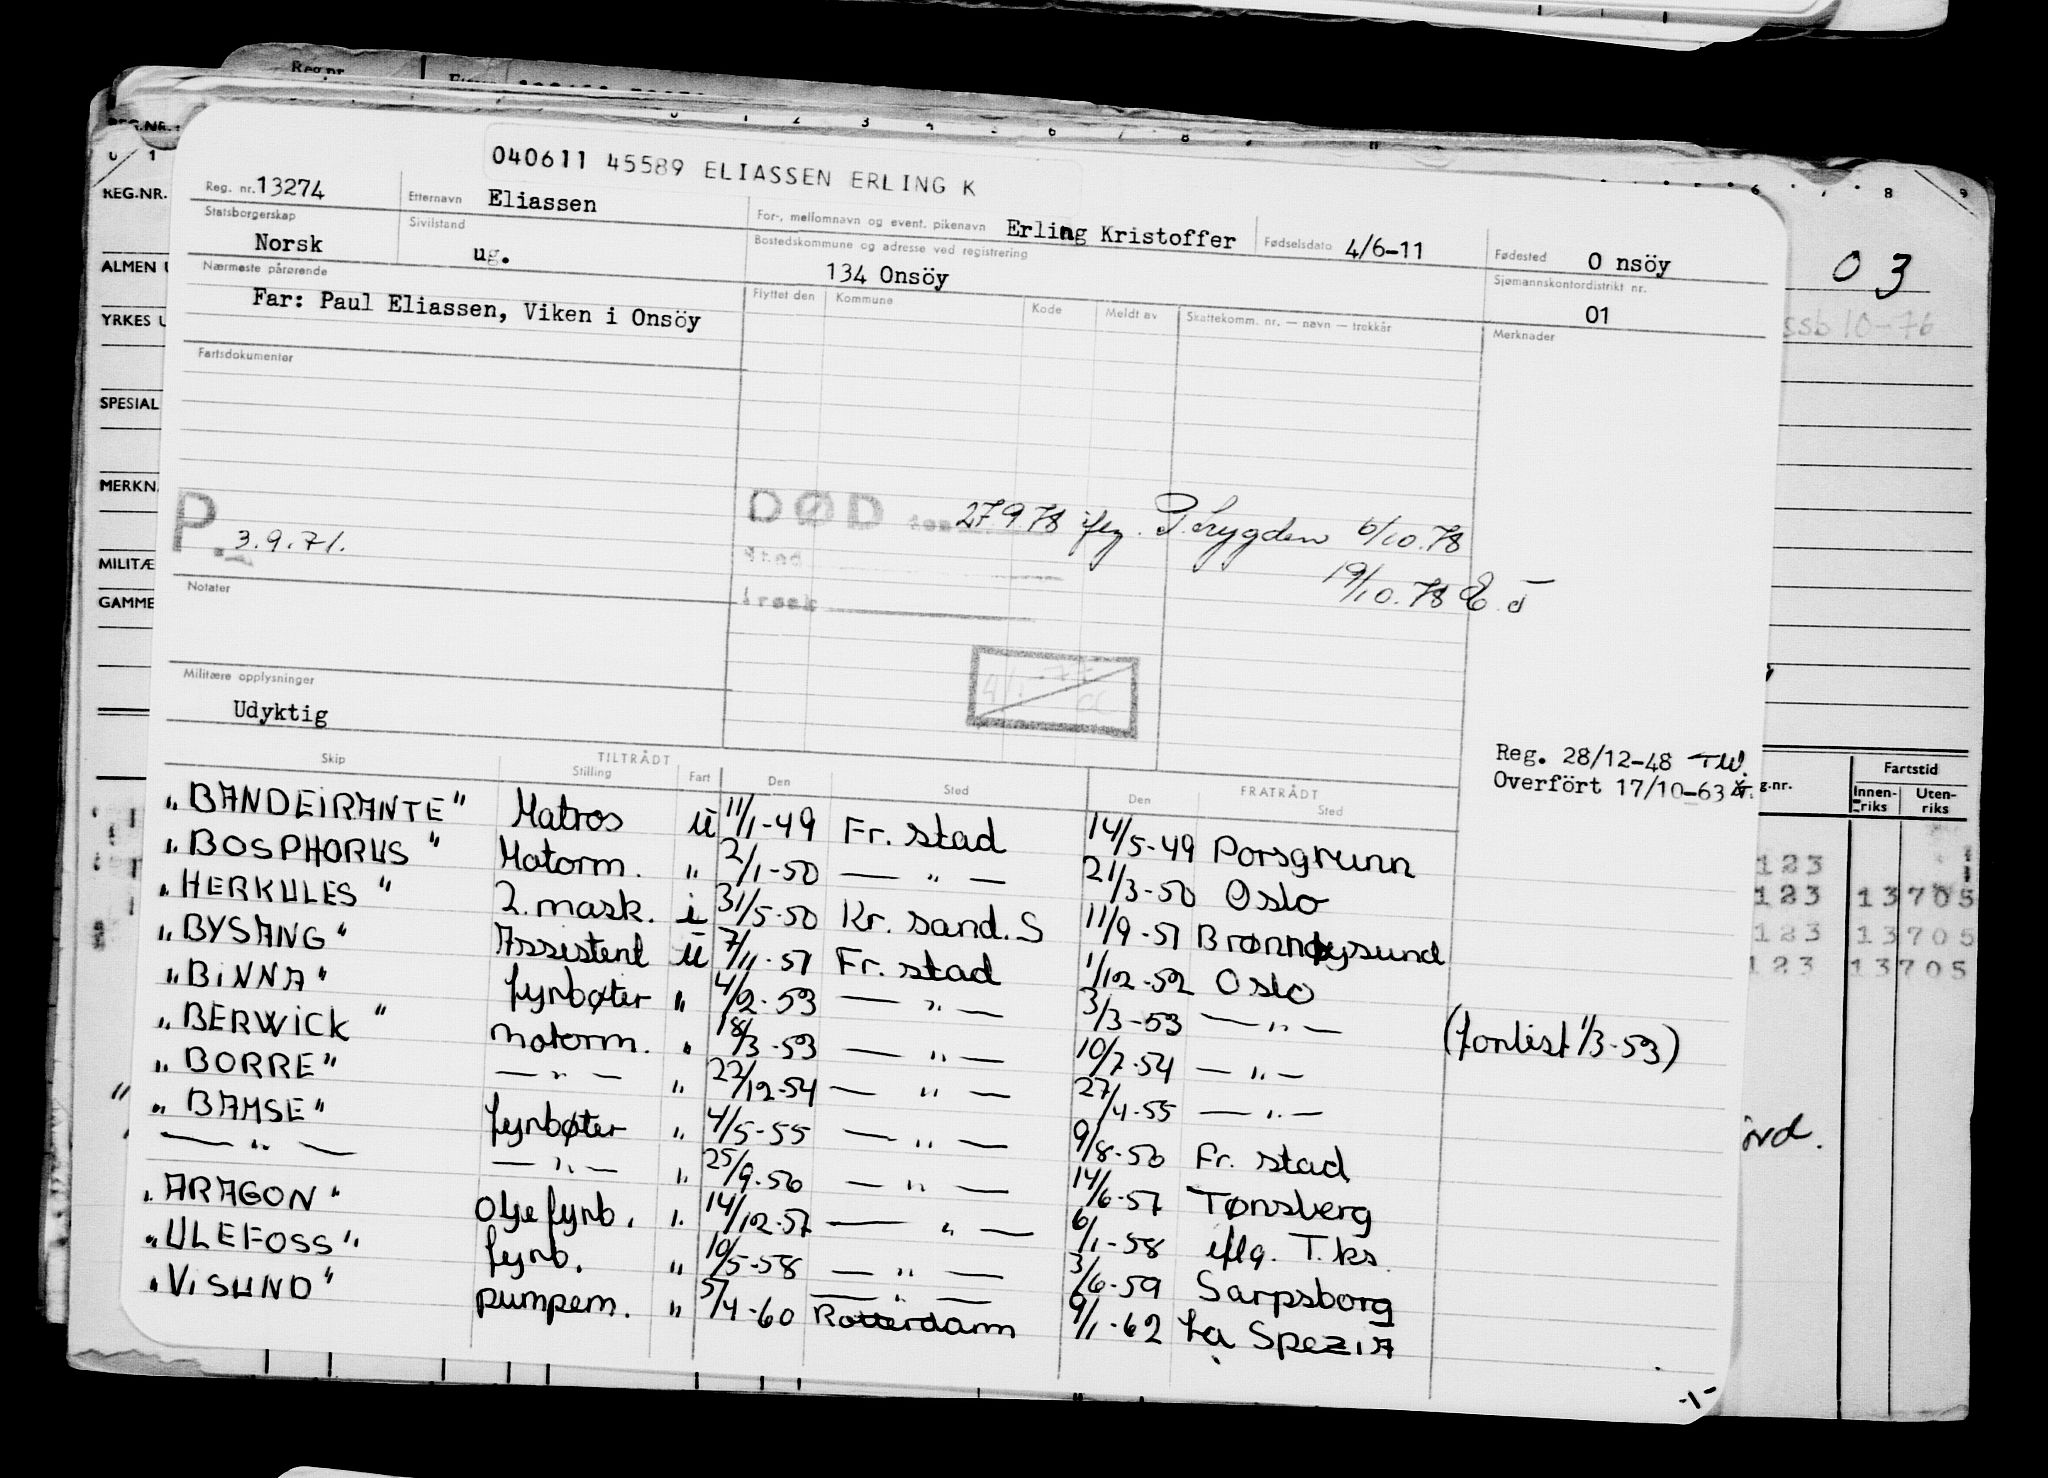 Reg.nr.
REG.NR.
0 1 2 3 4 5 6 7 8
6 7 8 9
0 1
REG.NR.
ALMEN U
YRKES U
SPESIAL
MERKN.
MILITÆ
GAMME
040611 45589 ELIASSEN ERLING K
Reg. nr. 13274
Etternavn Eliassen
For-, mellomnavn og event. pikenavn Erling Kristoffer
Fødselsdato 4/6-11
Fødested O nsöy
Statsborgerskap Norsk
Sivilstand ug.
Bostedskommune og adresse ved registrering 134 Onsöy
Sjømannskontordistrikt nr. 01
Nærmeste pårørende
Far: Paul Eliassen, Viken i Onsöy
Flyttet den Kommune Kode Meldt av Skattekomm. nr. — navn — trekkår Merknader
Fartsdokumenter
P. 3.9.71.
DØD 27 9 78 iflg. P. trygden 6/10.78
Sted
19/10.78
Notater
Militære opplysninger
Udyktig
Reg. 28/12-48 TW.
Overfört 17/10-63
Skip TILTRÅDT Stilling Fart Den Sted FRATRÅDT Den Sted
"BANDEIRANTE" Matros u 11/1-49 Fr. stad 14/5-49 Porsgrunn
"BOSPHORUS" Motorm. " 2/1-50 — " — 21/3-50 Oslo
"HERKULES" 2. mask. i 31/5-50 Kr. sand. S 11/9-51 Brønnøysund
"BYSANG" Assistent u 7/11-51 Fr. stad 1/12-52 Oslo
"BINNA" fyrbøter " 4/2-53 — " — 3/3-53 — " — (forlist 1/3-53)
"BERWICK" motorm. " 18/3-53 — " — 10/7-54 — " —
"BORRE" — " — " 22/12-54 — " — 27/4-55 — " —
"BAMSE" fyrbøter " 4/5-55 — " — 9/8-56 Fr. stad
— " — — " — " 25/9-56 — " — 14/6-57 Tønsberg
"ARAGON" oljefyrb. " 14/12-57 — " — 6/1-58 iflg. T.ks.
"ULEFOSS" fyrb. " 10/5-58 — " — 3/6-59 Sarpsborg
"VISUND" pumpem. " 5/4-60 Rotterdam 9/1-62 La Spezia
-1-
03
ssb 10-76
g.nr. Fartstid
Innen-riks Uten-riks
123
123 13705
123 13705
123 13705